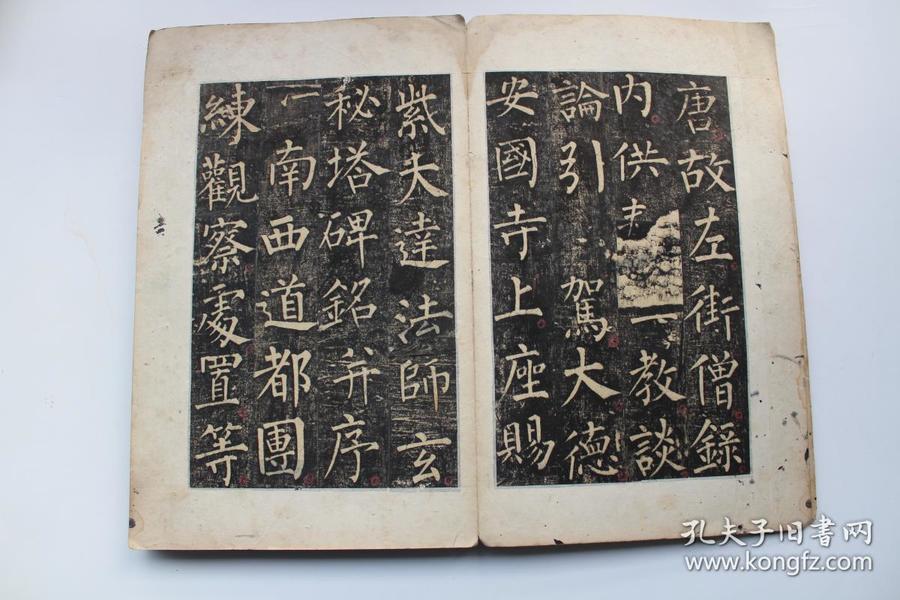 唐故左街僧錄
内供一教談
論引駕大德
安國寺上座賜
紫大達法師玄
秘塔碑銘并序
南西道都團
練觀察處置等
孔夫子旧書网
www.kongfz.com